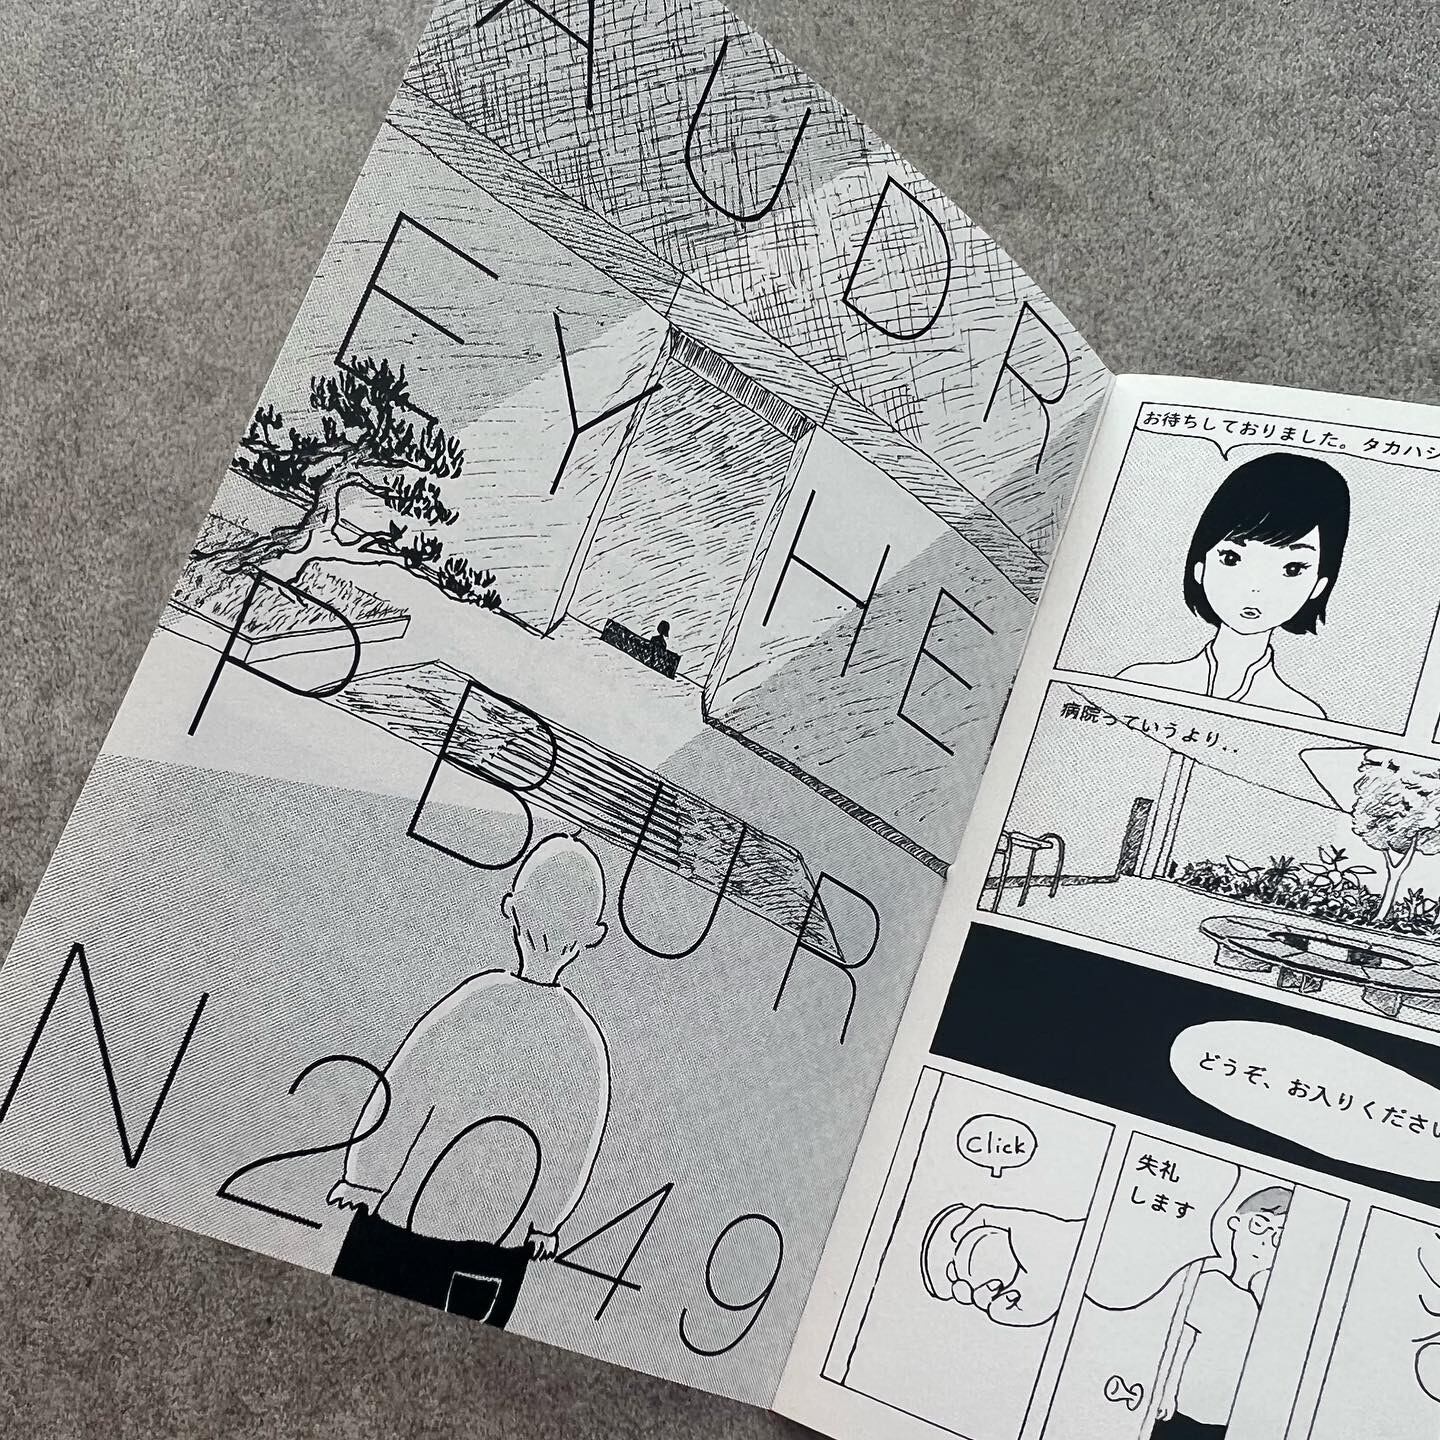 AUDR
EY HE
PBUR
N 2049
お待ちしておりました。タカハシ
病院っていうより..
どうぞ、お入りください
Click
失礼
します